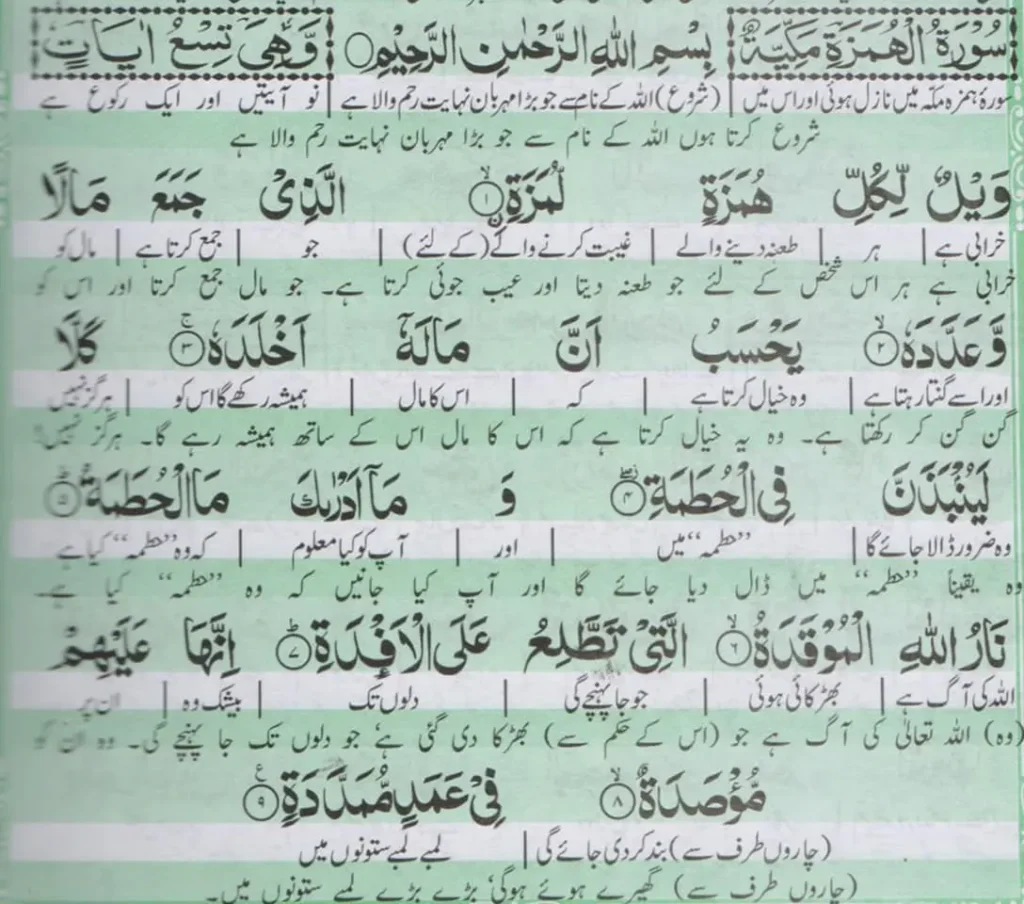 سُوْرَةُ الْهُمَزَةِ مَكِّيَّةٌ بِسْمِ اللهِ الرَّحْمٰنِ الرَّحِيْمِ وَّهِىَ تِسْعُ اٰيَاتٍ
سورۂ ہمزہ مکّہ میں نازل ہوئی اور اس میں | (شروع) اللہ کے نام سے جو بڑا مہربان نہایت رحم والا ہے | نو آیتیں اور ایک رکوع ہے
شروع کرتا ہوں اللہ کے نام سے جو بڑا مہربان نہایت رحم والا ہے
وَيْلٌ لِّكُلِّ هُمَزَةٍ لُّمَزَةِ ۙ﴿۱﴾ الَّذِىْ جَمَعَ مَالًا
خرابی ہے | ہر | طعنہ دینے والے | غیبت کرنے والے (کے لئے) | جو | جمع کرتا ہے | مال کو
خرابی ہے ہر اس شخص کے لئے جو طعنہ دیتا اور عیب جوئی کرتا ہے۔ جو مال جمع کرتا اور اس کو
وَّعَدَّدَهٗ ۙ﴿۲﴾ يَحْسَبُ اَنَّ مَالَهٗٓ اَخْلَدَهٗ ۚ﴿۳﴾ كَلَّا
اور اسے گنتا رہتا ہے | وہ خیال کرتا ہے | کہ | اس کا مال | ہمیشہ رکھے گا اس کو | ہرگز نہیں
گن گن کر رکھتا ہے۔ وہ یہ خیال کرتا ہے کہ اس کا مال اس کے ساتھ ہمیشہ رہے گا۔ ہرگز نہیں!
لَيُنْۢبَذَنَّ فِى الْحُطَمَةِ ۖ﴿۴﴾ وَ مَآ اَدْرٰىكَ مَا الْحُطَمَةُ ؕ﴿۵﴾
وہ ضرور ڈالا جائے گا | ”حطمہ“ میں | اور | آپ کو کیا معلوم | کہ وہ ”حطمہ“ کیا ہے
وہ یقیناً ”حطمہ“ میں ڈال دیا جائے گا اور آپ کیا جانیں کہ وہ ”حطمہ“ کیا ہے۔
نَارُ اللهِ الْمُوْقَدَةُ ۙ﴿۶﴾ الَّتِىْ تَطَّلِعُ عَلَى الْاَفْـِٕدَةِ ؕ﴿۷﴾ اِنَّهَا عَلَيْهِمْ
اللہ کی آگ ہے | بھڑکائی ہوئی | جو جا پہنچے گی | دلوں تک | بیشک وہ | ان پر
(وہ) اللہ تعالٰی کی آگ ہے جو (اس کے حکم سے) بھڑکا دی گئی ہے، جو دلوں تک جا پہنچے گی۔ وہ ان کو
مُّؤْصَدَةٌ ۙ﴿۸﴾ فِىْ عَمَدٍ مُّمَدَّدَةٍ ﴿۹﴾
(چاروں طرف سے) بند کردی جائے گی | لمبے لمبے ستونوں میں
(چاروں طرف سے) گھیرے ہوئے ہوگی، بڑے بڑے لمبے ستونوں میں۔